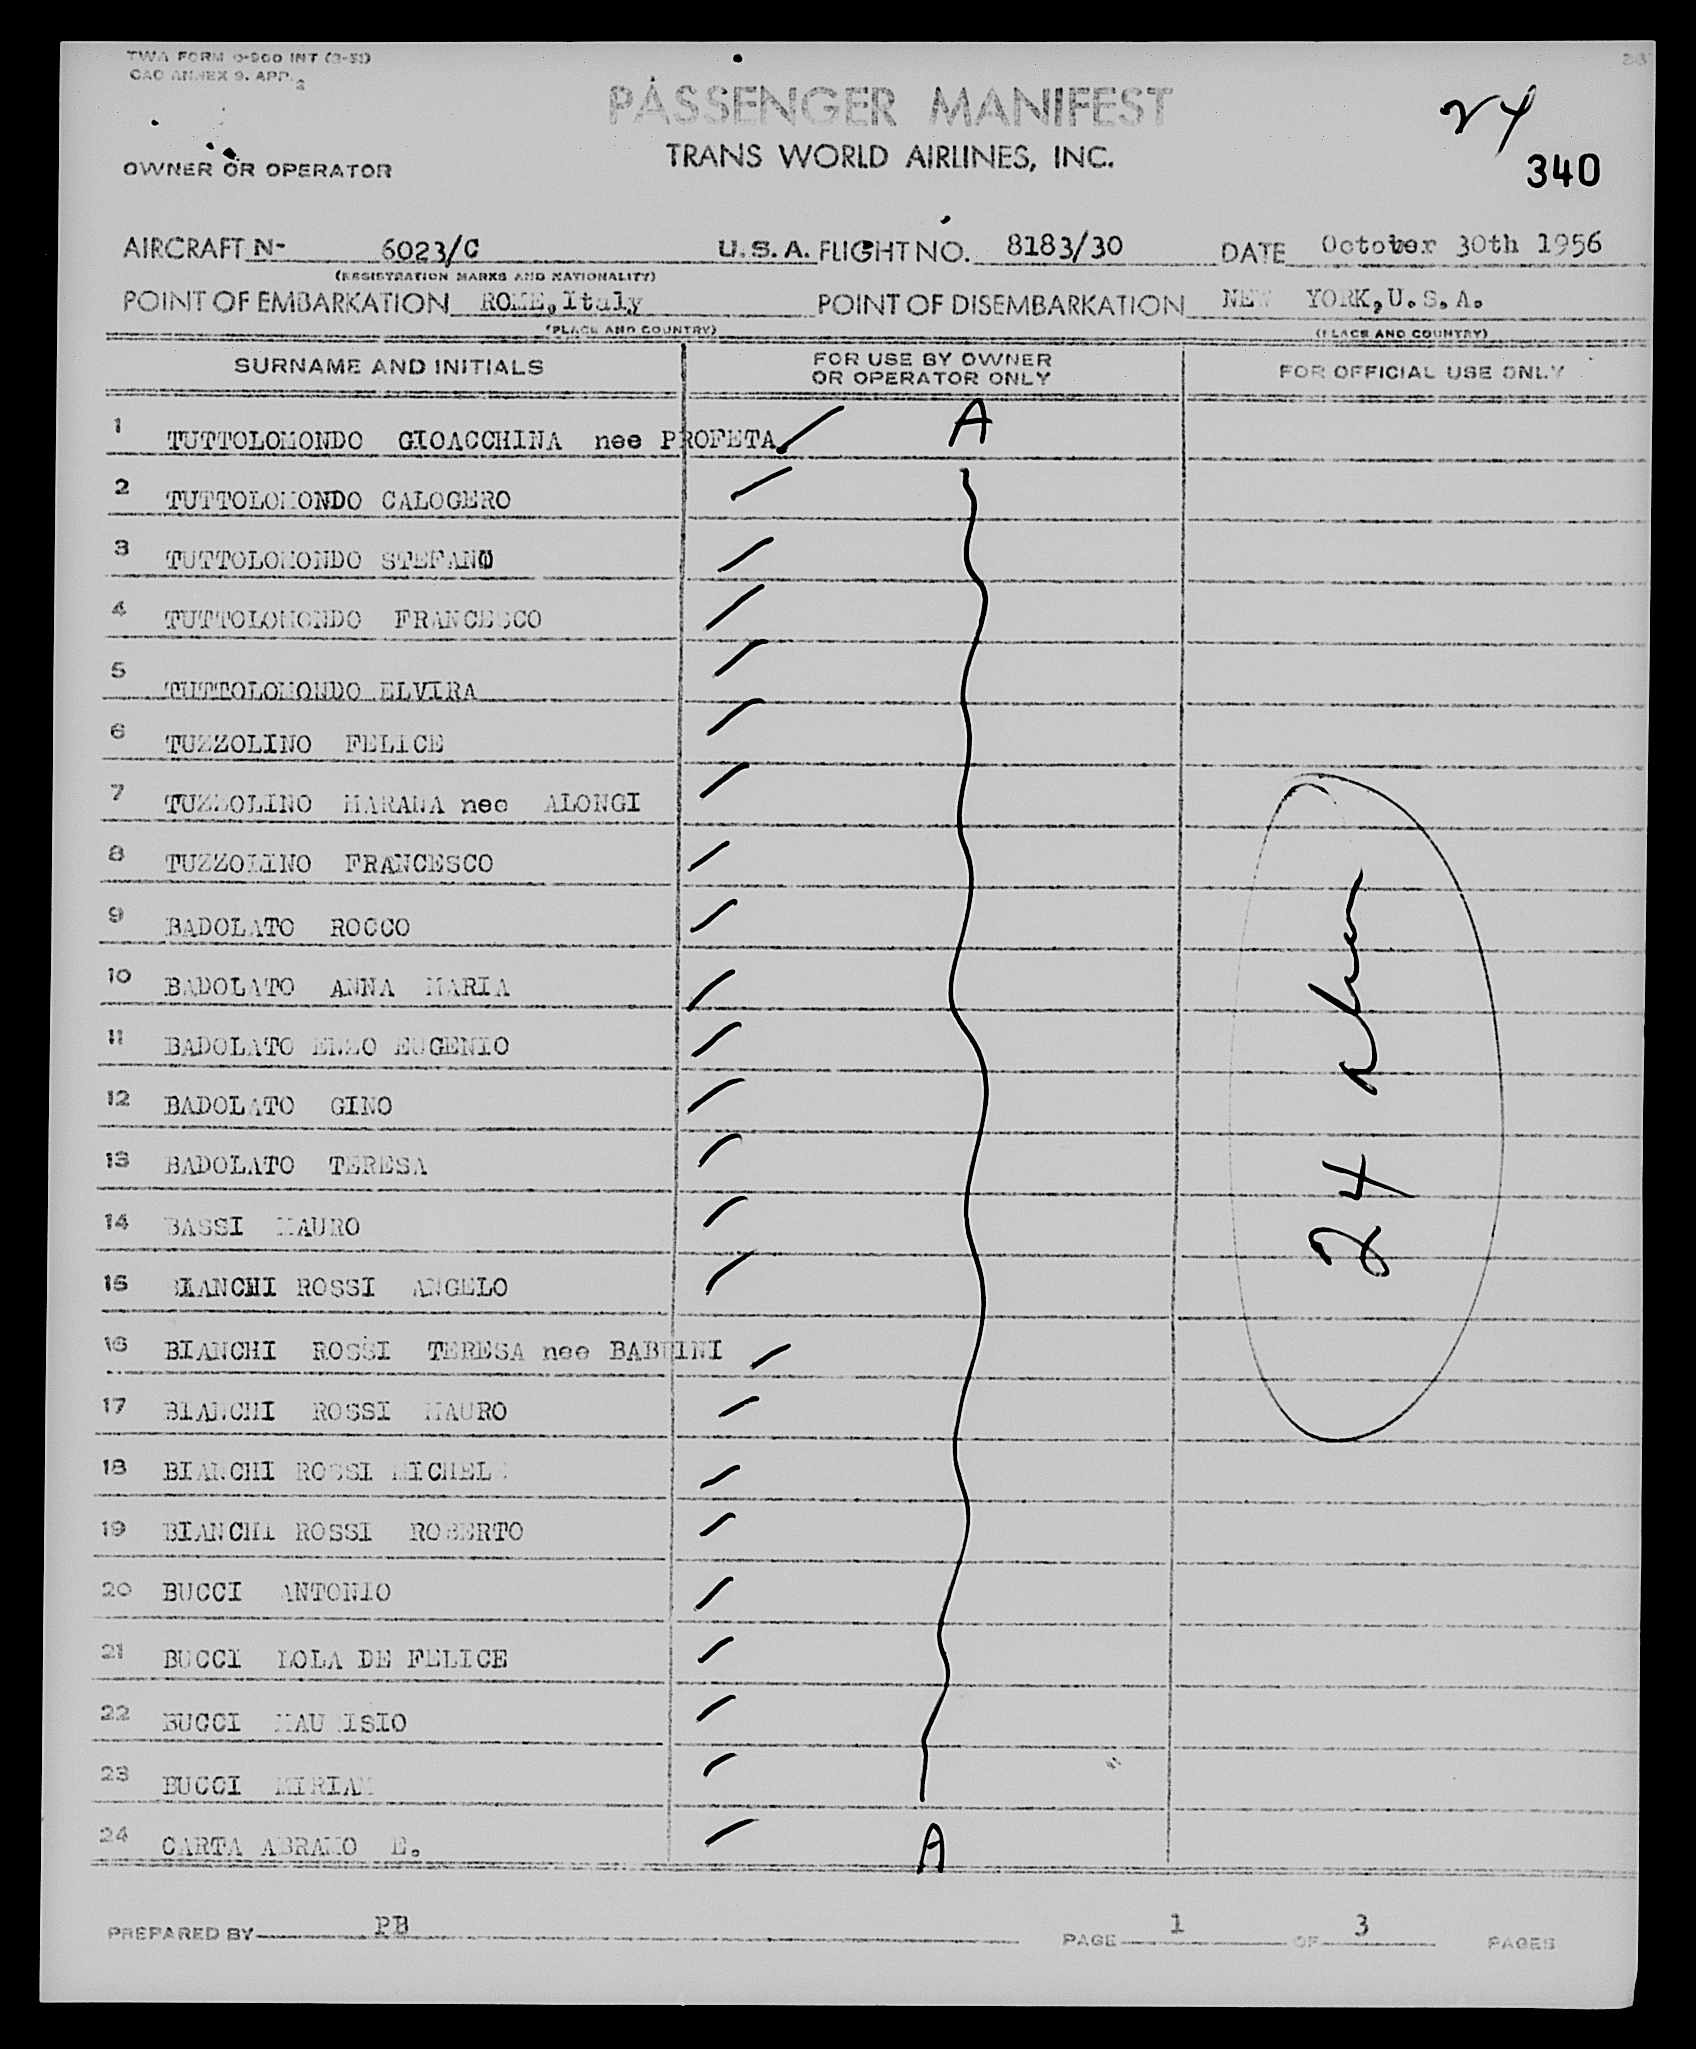 TWA FORM O-900 INT (3-51)
CAO ANNEX 9. APP. 2
PASSENGER MANIFEST
24
TRANS WORLD AIRLINES, INC.
340
OWNER OR OPERATOR
AIRCRAFT N- 6023/C U.S.A. FLIGHT NO. 8183/30 DATE October 30th 1956
(REGISTRATION MARKS AND NATIONALITY)
POINT OF EMBARKATION ROME,Italy POINT OF DISEMBARKATION NEW YORK,U.S.A.
(PLACE AND COUNTRY) (PLACE AND COUNTRY)
SURNAME AND INITIALS FOR USE BY OWNER OR OPERATOR ONLY FOR OFFICIAL USE ONLY
1 TUTTOLOMONDO GIOACCHINA nee PROFETA A
2 TUTTOLOMONDO CALOGERO
3 TUTTOLOMONDO STEFANO
4 TUTTOLOMONDO FRANCESCO
5 TUTTOLOMONDO ELVIRA
6 TUZZOLINO FELICE
7 TUZZOLINO MARANA nee ALONGI
8 TUZZOLINO FRANCESCO
9 BADOLATO ROCCO
10 BADOLATO ANNA MARIA
11 BADOLATO ENZO EUGENIO
12 BADOLATO GINO
13 BADOLATO TERESA
24
14 BASSI MAURO
15 BIANCHI ROSSI ANGELO
16 BIANCHI ROSSI TERESA nee BABUINI
17 BIANCHI ROSSI MAURO
18 BIANCHI ROSSI MICHELE
19 BIANCHI ROSSI ROBERTO
20 BUCCI ANTONIO
21 BUCCI LOLA DE FELICE
22 BUCCI MAURISIO
23 BUCCI MIRIAM
24 CARTA ABRAMO E. A
PREPARED BY PB PAGE 1 OF 3 PAGES